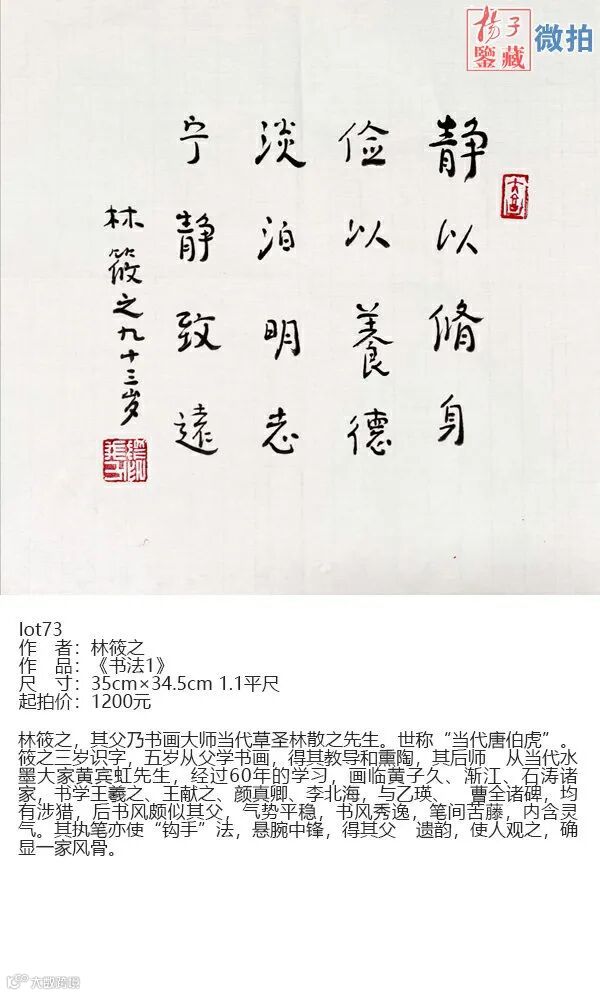 揚子
鑒藏
微拍
静以脩身
俭以養德
淡泊明志
宁静致遠
林筱之九十三岁
lot73
作 者：林筱之
作 品：《书法1》
尺 寸：35cm×34.5cm 1.1平尺
起拍价：1200元
林筱之，其父乃书画大师当代草圣林散之先生。世称“当代唐伯虎”。
筱之三岁识字，五岁从父学书画，得其教导和熏陶，其后师 从当代水
墨大家黄宾虹先生，经过60年的学习，画临黄子久、渐江、石涛诸
家，书学王羲之、王献之、颜真卿、李北海，与乙瑛、 曹全诸碑，均
有涉猎，后书风颇似其父，气势平稳，书风秀逸，笔间苦藤，内含灵
气。其执笔亦使“钩手”法，悬腕中锋，得其父 遗韵，使人观之，确
显一家风骨。
大数跨境